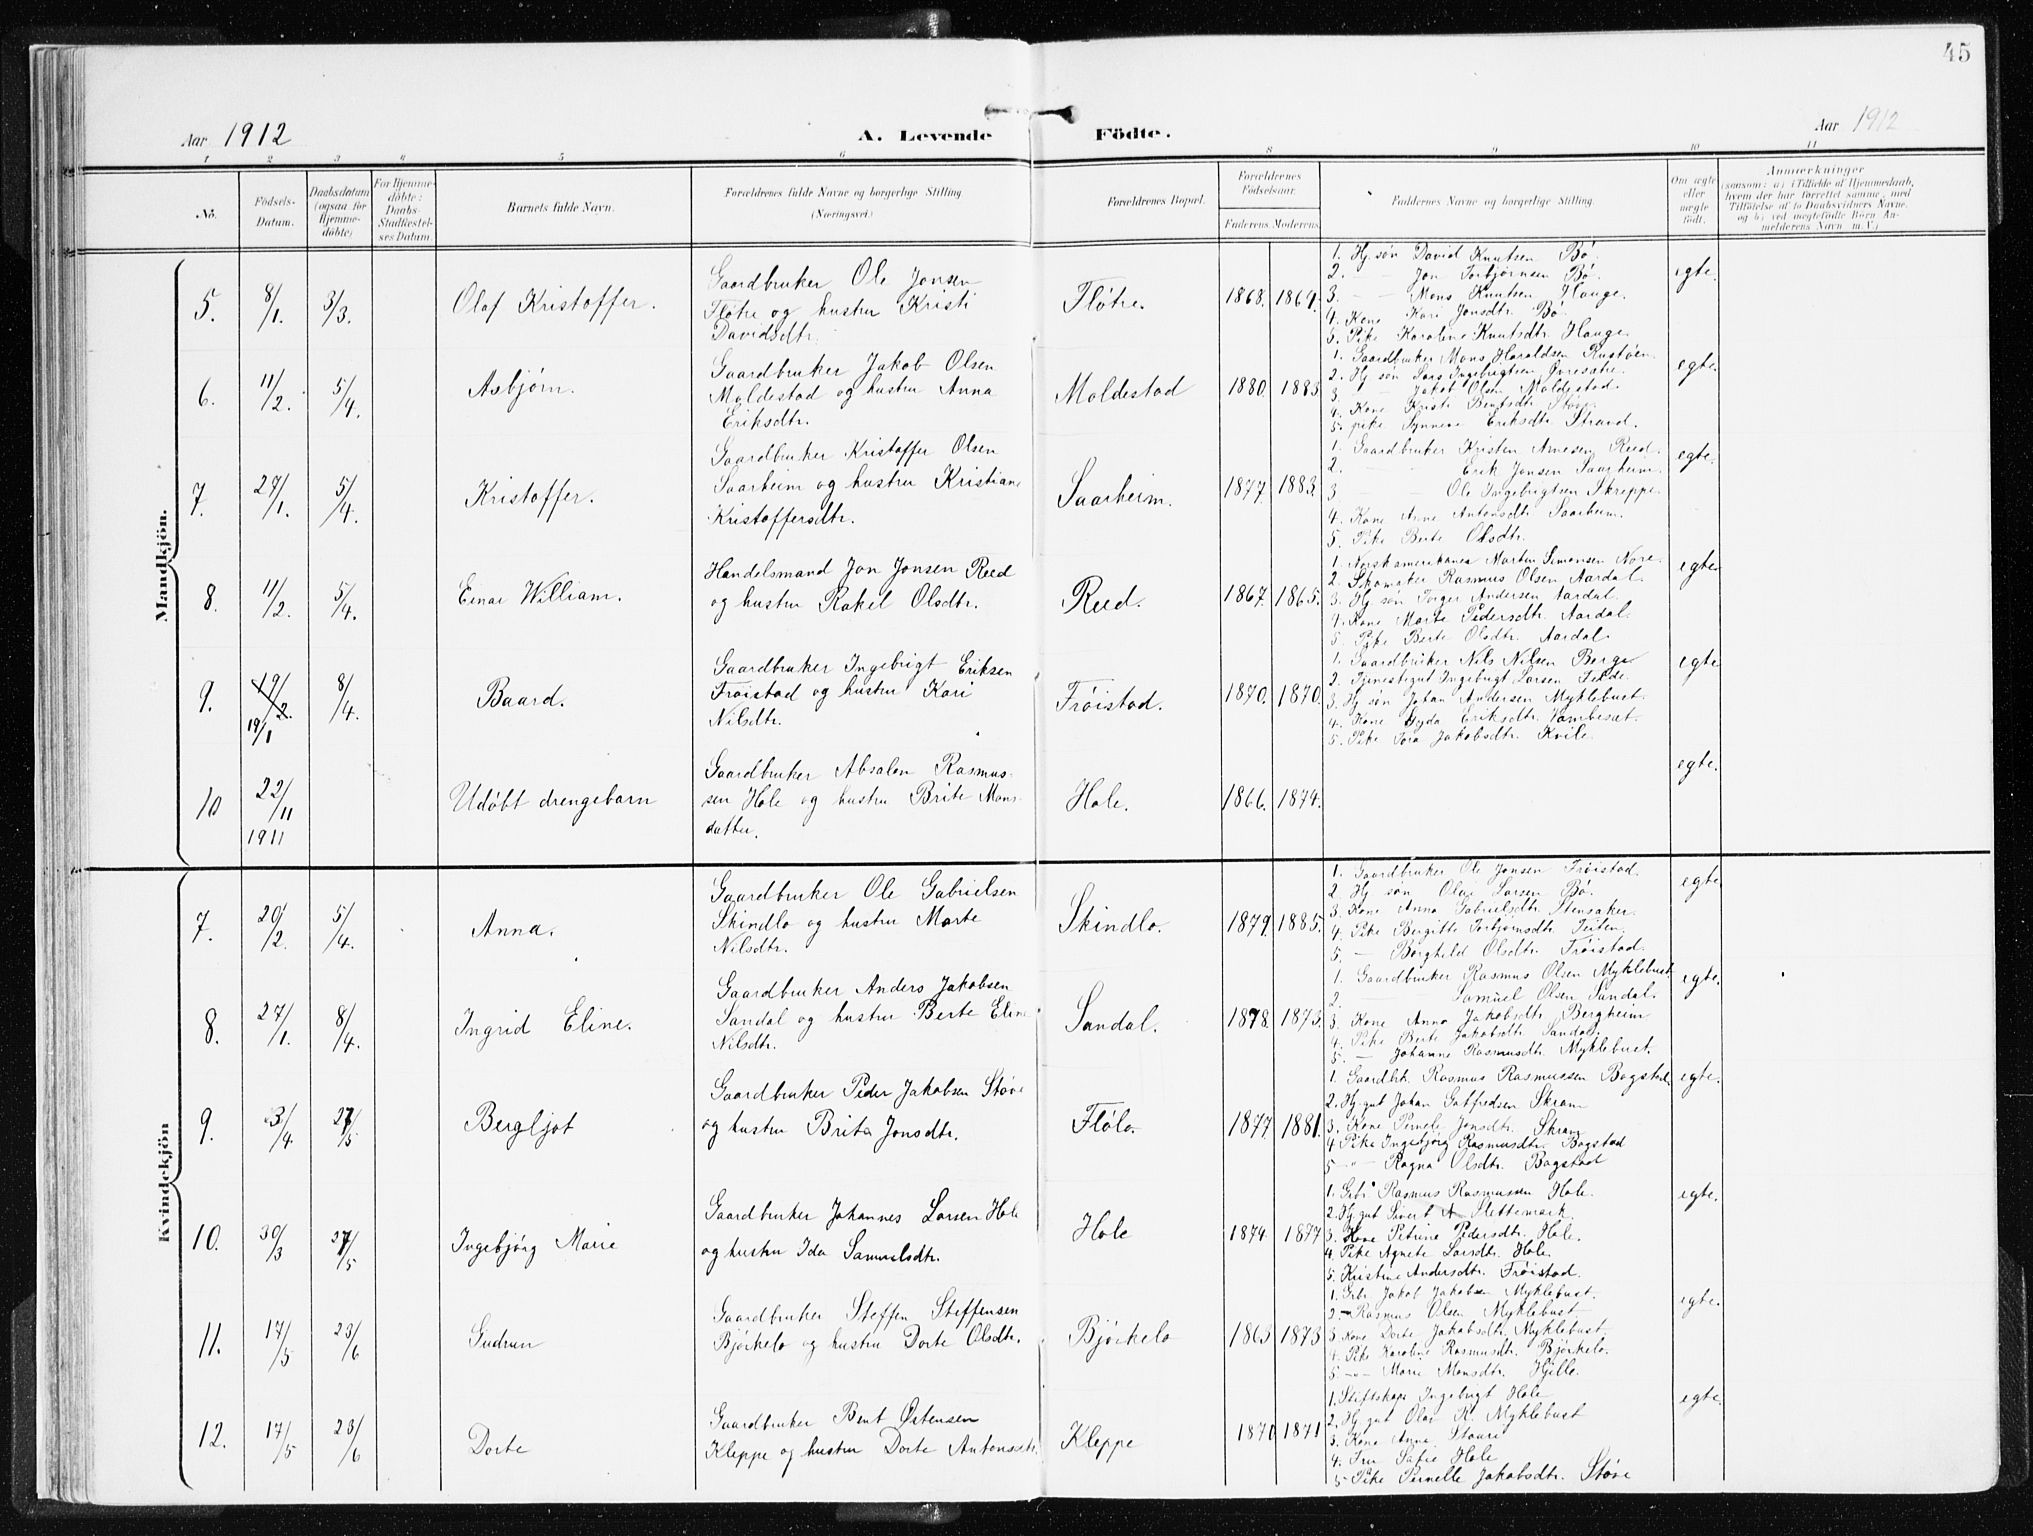 45
Aar 1912
A. Levende Födte.
Aar 1912
1 2 3 4 5 6 8 9 10 11
No.
Födsels-Datum.
Daabsdatum (ogsaa for Hjemmedöbte)
For Hjemmedöbte: Daabs-Stadfæstelses Datum.
Barnets fulde Navn.
Forældrenes fulde Navne og borgerlige Stilling (Næringsvei)
Forældrenes Bopæl.
Forældrenes Födselsaar.
Faderens. Moderens.
Faddernes Navne og borgerlige Stilling.
Om ægte eller uægte födt.
Anmærkninger
(saasom: a) i Tilfælde af Hjemmedaab,
hvem der har forrettet samme, med
Tilföielse af to Daabsvidners Navne,
og b) ved uegtefödte Börn An-
melderens Navn m. V.)
Mandkjön.
5. 8/1. 3/3. Olaf Kristoffer.
Gaardbruker Ole Jonsen
Flötre og hustru Kristi
Davidsdtr.
Flötre. 1868. 1864.
1. Hj. sön David Knutsen Bö.
2. — — Jon Torbjörnsen Bö.
3. — — Mons Knutsen Hauge.
4. Kone Kari Jonsdtr. Bö.
5. Pike Karoline Knutsdtr. Hauge.
egte.
6. 11/2. 5/4. Asbjörn.
Gaardbruker Jakob Olsen
Moldestad og hustru Anna
Eriksdtr.
Moldestad 1880. 1883
1. Gaardbruker Mons Haraldsen Rustöen.
2. Hj. sön Lars Ingebrigtsen
3. — — Jakob Olsen Moldestad.
4. Kone Kristi Bentsdtr. Störe.
5. pike Synneve Eriksdtr. Strand.
egte.
7. 27/1. 5/4. Kristoffer.
Gaardbruker Kristoffer Olsen
Saarheim og hustru Kristiane
Kristoffersdtr.
Saarheim. 1877. 1883.
1. Gaardbruker Kristen Arnesen Reed.
2. — Erik Jonsen Saarheim.
3 — — Ole Ingebrigtsen Skreppe.
4. Kone Anne Antonsdtr Saarheim.
5. Pike Berte Olsdtr.
egte.
8. 11/2. 5/4. Einar William.
Handelsmand Jon Jonsen Reed
og hustru Rakel Olsdtr.
Reed. 1867. 1865.
1. Norskamerikaner Morten Simonsen Nore.
2. Skomaker Rasmus Olsen Aardal.
3. Hj. sön Torger Andersen Aardal.
4. Kone Marte Pedersdtr. Aardal.
5. Pike Berte Olsdtr. Aardal.
egte
9. 19/2. 19/1 8/4. Baard.
Gaardbruker Ingebrigt Eriksen
Fröistad og hustru Kari
Nilsdtr.
Fröistad. 1870. 1870.
1. Gaardbruker Nils Nilsen Berge
2. Tjenestegut Ingebrigt Larsen Felde.
3. Hj. sön Johan Andersen Myklebust.
4. Kone Gyda Eriksdtr.
5. Pike Tora Jakobsdtr. Kvile.
egte
10 22/11 1911 Udöbt drengebarn
Gaardbruker Absalon Rasmus-
sen Hole og hustru Brite Mons-
datter.
Hole. 1866. 1874.
egte.
Kvindekjön
7. 20/2. 5/4. Anna.
Gaardbruker Ole Gabrielsen
Skindlo og hustru Marte
Nilsdtr.
Skindlo. 1879. 1885.
1. Gaardbruker Ole Jonsen Fröistad.
2. Hj. sön Olai Larsen Bö.
3. Kone Anna Gabrielsdtr Stensaker.
4. Pike Bergitte Torbjörnsdtr Teiten.
5. — Borghild Olsdtr. Fröistad.
egte.
8. 27/1. 8/4. Ingrid Eline.
Gaardbruker Anders Jakobsen
Sandal og hustru Berte Eline
Nilsdtr.
Sandal. 1878. 1873.
1. Gaardbruker Rasmus Olsen Myklebust.
2. — Samuel Olsen Sandal.
3. Kone Anna Jakobsdtr Bergheim
4. Pike Berte Jakobsdtr. Sandal.
5. — Johanne Rasmusdtr. Myklebust.
egte.
9. 3/4. 27/5 Bergljot
Gaardbruker Peder Jakobsen Störe
og hustru Brita Jonsdtr.
Flölo. 1877 1881.
1. Gaardbr. Rasmus Rasmussen Bogstad.
2. Hj. gut Johan Gotfredsen Skram
3. Kone Pernele Jonsdtr. Skram
4 Pike Ingebjörg Rasmusdtr. Bogstad
5 -"- Ragna Olsdtr. Bogstad
egte.
10. 30/3 27/5 Ingebjörg Marie
Gaardbruker Johannes Larsen Hole
og hustru Ida Samuelsdtr.
Hole 1874. 1877
1. Gbr. Rasmus Rasmussen Hole.
2. Hj. gut Sivert A. Slettemark.
3. Kone Petrine Pedersdtr. Hole.
4. Pike Agnete Larsdtr. Hole.
5. Kristine Andersdtr. Fröistad.
egte.
11. 17/5 23/6 Gudrun
Gaardbruker Steffen Steffensen
Bjørkelo og hustru Dorte Olsdtr.
Bjørkelo 1863 1873
1. Gbr. Jakob Jakobsen Myklebust.
2. — Rasmus Olsen Myklebust
3. Kone Dorte Jakobsdtr. Myklebust
4. Pike Karoline Rasmusdtr. Björkelo.
5. -"- Marie Monsdtr. Hjelle.
egte.
12. 17/5 23/6 Dorte
Gaardbruker Bent Østensen
Kleppe og hustru Dorte Antonsdtr.
Kleppe 1870 1871
1. Stiftskap. Ingebrigt Hole
2. Hj. gut Olai R. Myklebust
3. Kone Anne Staure
4. Fru Sofie Hole
5 Pike Pernelle Jakobsdtr. Störe
egte.